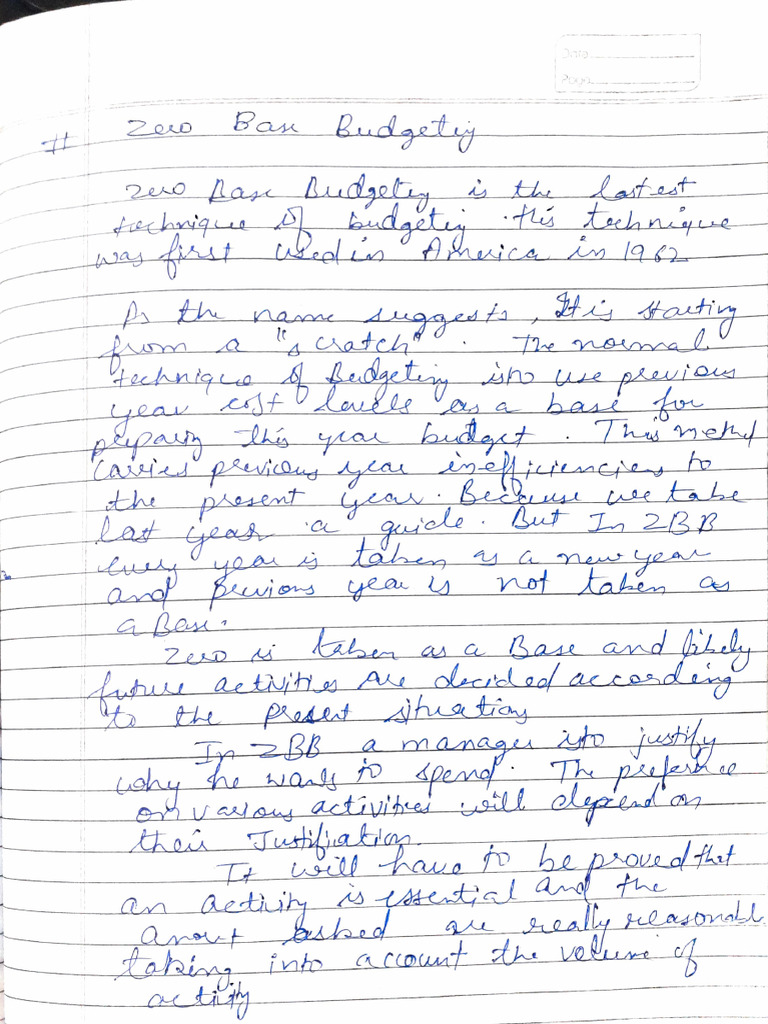 Date
Page
# Zero Base Budgeting
Zero Base Budgeting is the lastest
technique of budgeting. this technique
was first used in America in 1962
As the name suggests, It is starting
from a "scratch". The normal
technique of Budgeting is to use previous
year cost levels as a base for
preparing this year budget. This method
carries previous year inefficiencies to
the present year. Because we take
last year a guide. But In ZBB
every year is taken as a new year
and previous year is not taken as
a Base.
Zero is taken as a Base and likely
future activities are decided according
to the present situations
In ZBB a manager is to justify
why he wants to spend. The preference
on various activities will depend on
their Justifiation.
It will have to be proved that
an activity is essential and the
amout asked are really reasonable
taking into account the volume of
activity